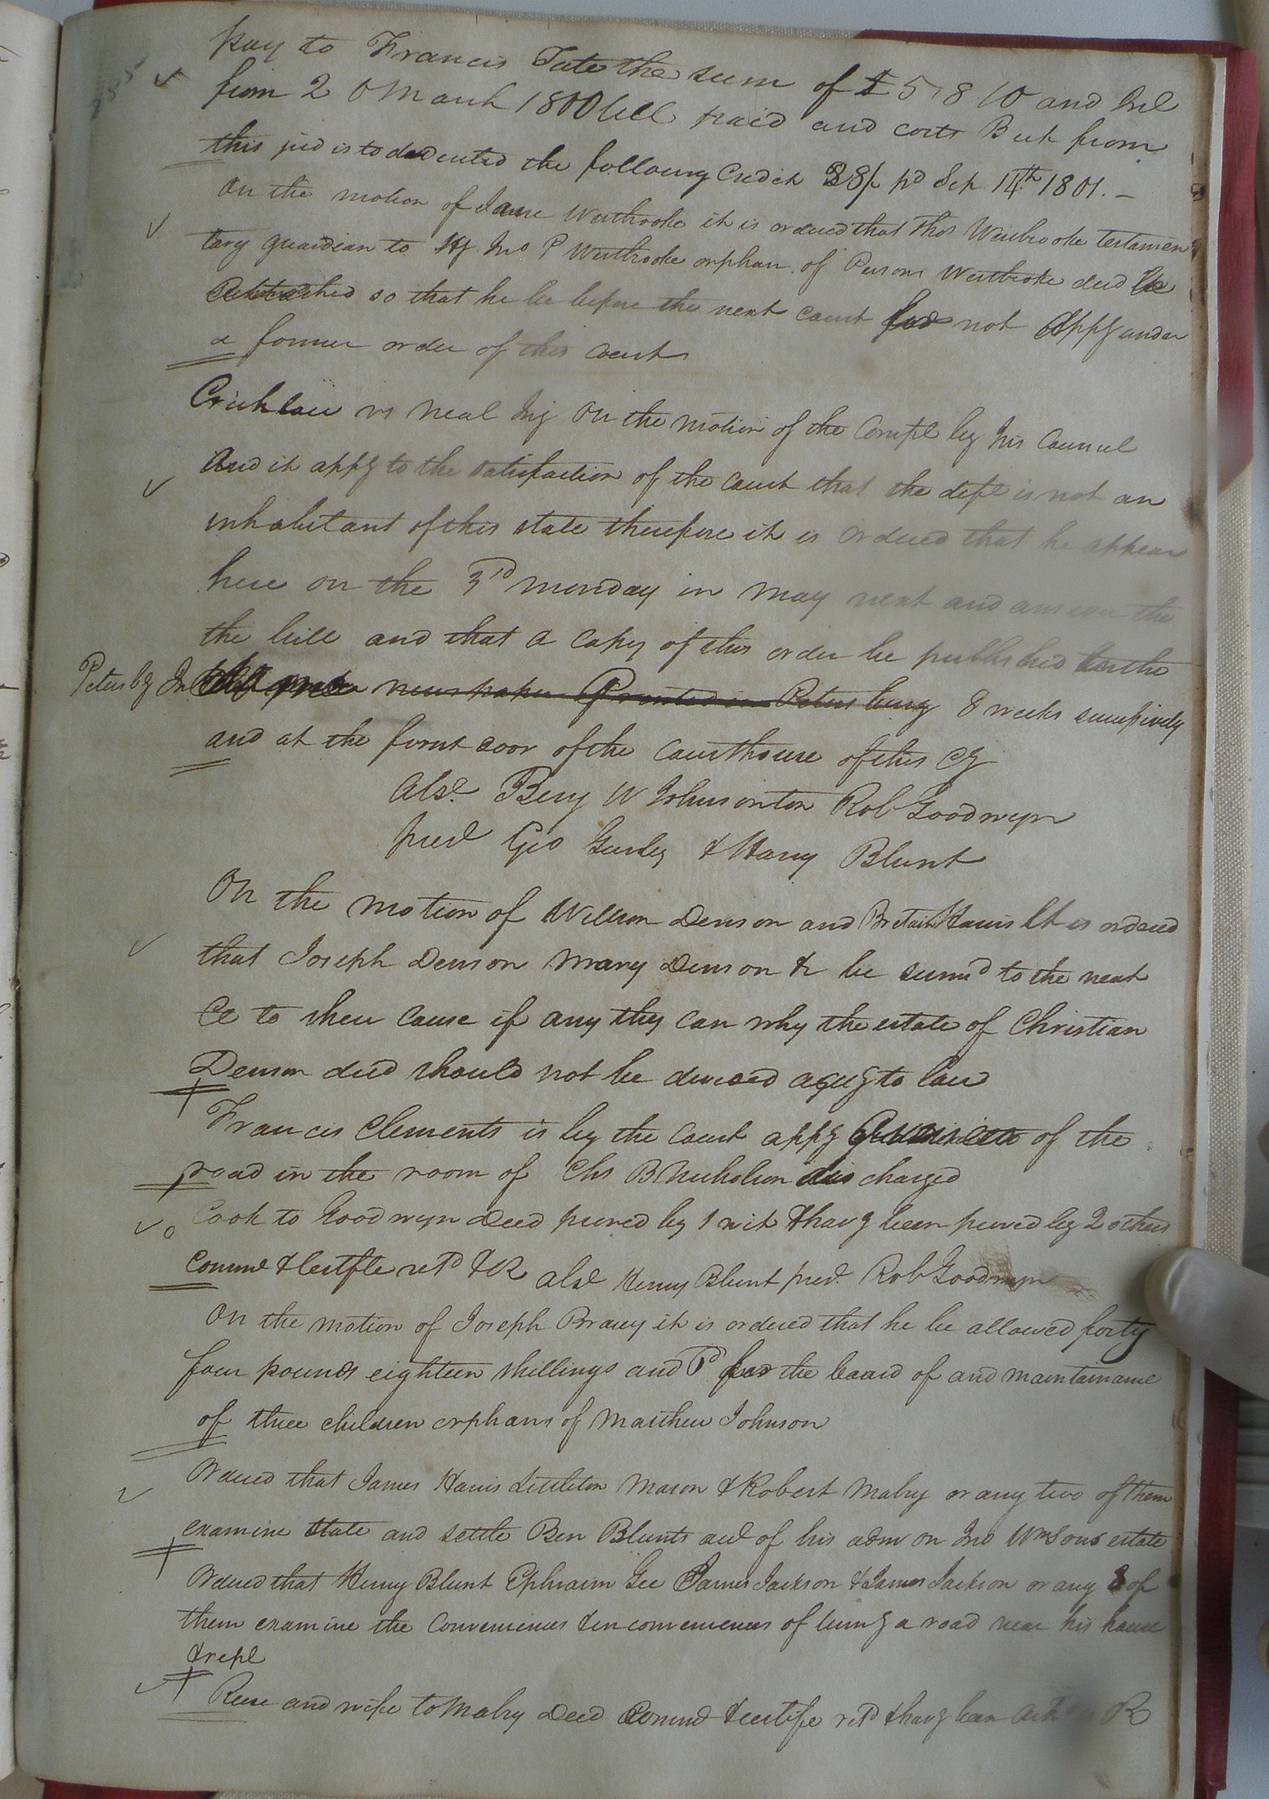 pay to Francis Tate the sum of £5.8.10 and Int
from 20 March 1800 till paid and costs But from
this jud is to deducted the following Credit 28/ pd Sep 14th 1801. –
On the motion of Jane Westbrooke it is ordered that Thos Westbrooke testamen
tary guardian to Jno P Westbrooke orphan of Parsons Westbrooke decd be
Attached so that he be before the next court for not Appg under
a former order of this Court
Crichlow vs Neal Inj On the motion of the Complt by his Councel
And it appg to the satisfaction of the Court that the deft is not an
inhabitant of this state therefore it is ordered that he appear
here on the 3rd monday in May next and answer the
the bill and that a copy of this order be published in the
Petersbg In newspaper Printed in Petersburg 8 weeks successively
and at the front door of the Courthouse of this Cy
Abst Benj W Johnsonton Rob Goodwyn
prest Geo Gurley & Harry Blunt
On the motion of Willson Denson and Britain Harris It is ordered
that Joseph Denson Mary Denson &c be summd to the next
Ct to shew Cause if any they can why the estate of Christian
Denson decd should not be devided agreeg to law
Francis Clements is by the Court appg of the
road in the room of Chs B Nicholson discharged
Cook to Goodwyn Deed proved by 1 wit & havg been proved by 2 others
Commn & Certfte retd & R abst Henry Blunt prest Rob Goodwyn
On the motion of Joseph Bracey it is ordered that he be allowed forty
four pounds eighteen shillings and for the board of and maintainance
of three children orphans of Matthew Johnson
Ordered that James Harris Littleton Mason & Robert Mabry or any two of them
examine state and settle Ben Blunts acct of his admn on Jno Wmsons estate
Ordered that Henry Blunt Ephraim Gee James Jackson & James Jackson or any 3 of
them examine the Conveniences & inconveniences of turng a road near his house
& rept
Reese and wife to Mabry Deed Commn & certife retd & havg been Ackd R